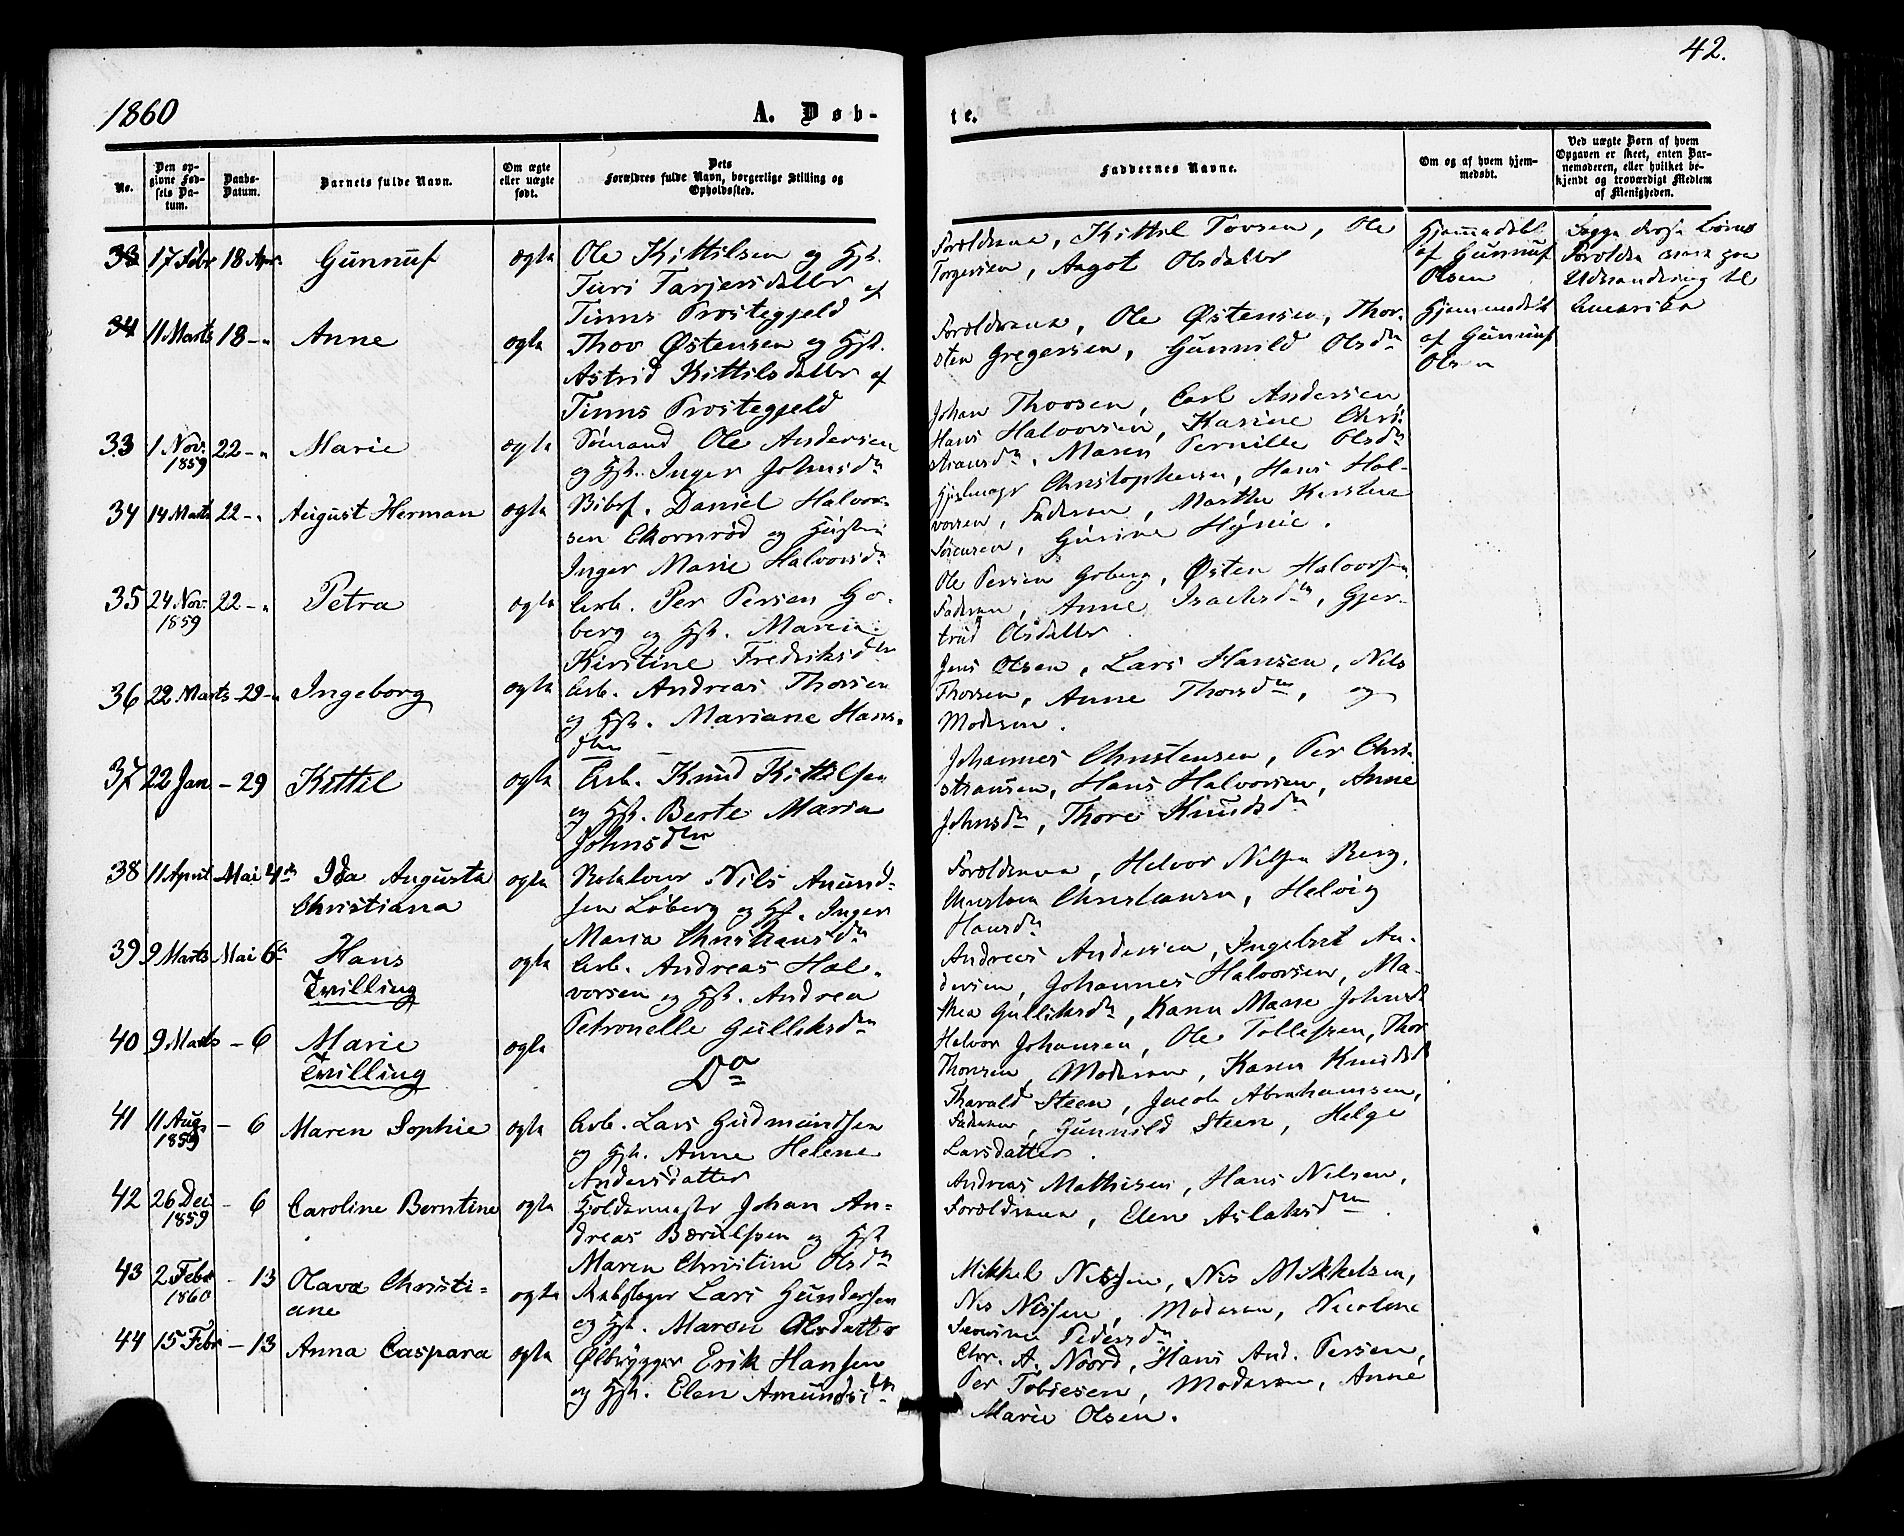 1860
A. Døb-
te.
42.
No.
Den op-
givne Fød-
sels Da-
tum.
Daabs-
Datum.
Barnets fulde Navn.
Om ægte
eller uægte
født.
Dets
Forældres fulde Navn, borgerlige Stilling og
Opholdssted.
Faddernes Navne.
Om og af hvem hjem-
medøbt.
Ved uægte Børn af hvem
Opgaven er skeet, enten Bar-
nemoderen, eller hvilket be-
kjendt og troværdigt Medlem
af Menigheden.
33 17 Febr 18 Apr. Gunnuf ægte
Ole Kittilsen og Hst.
Turi Tarjersdatter af
Tinns Prostegjeld
Forældrene, Kittil Tovsen, Ole
Torgersen, Aagot Olsdatter
Hjemmedøbt
af Gunnuf
Olsen
Begge disse Børns
Forældre ere paa
Udvandring til
Amerika
34 11 Marts 18 - " Anne ægte
Thov Østensen og Hst.
Astrid Kittilsdatter af
Tinns Prostegjeld
Forældrene, Ole Østensen, Thor-
sten Gregersen, Gunnild Olsdtr
Hjemmedøbt
af Gunnuf
Olsen
33 1 Nov. 1859 22 - " Marie ægte
Sømand Ole Andersen
og Hst. Inger Johnsdtr
Johan Thovsen, Carl Andersen
Hans Halvorsen, Karine Chri-
stiansdtr, Maren Pernille Olsdtr
34 14 Marts 22 - " August Herman ægte
Daniel Halvor-
sen Ekornrød og Hustru
Inger Marie Halvorsdtr
Christophersen, Hans Hal-
vorsen, Faderen, Marthe Kirstine
Sørensen, Gurine Hynie.
35 24 Nov. 1859 22 - " Petra ægte
Arb. Per Persen Go-
berg og Hst. Maren
Kirstine Fredriksdtr
Ole Persen Goberg, Østen Halvorsen
Faderen, Anne Isachsdtr, Gjer-
trud Olsdatter.
36 22 Marts - 29 - " Ingeborg ægte
Arb. Andreas Thovsen
og Hst. Mariane Hans-
dtr
Jens Olsen, Lars Hansen, Nils
Thovsen, Anne Thovsdtr, og
Moderen.
37 22 Jan - 29 Kittil ægte
Arb. Knud Kittilsen
og Hst. Berte Maria
Johnsdtr
Johannes Christensen, Per Chri-
stiansen, Hans Halvorsen, Anne
Johnsdtr, Thore Knudsdtr
38 11 April Mai 4de Ida Augusta
Christiana ægte
Nils Amund-
sen Løberg og Hst. Inger
Maria Christiansdtr
Forældrene, Helvor Nilsen Berg,
Christen Christiansen, Helvig
Hansdtr
39 9 Marts Mai 6te Hans
Tvilling ægte
Arb. Andreas Hal-
vorsen og Hst. Andrea
Petronelle Gulliksdtr
Andreas Andersen, Ingebret An-
dersen, Johannes Halvorsen, Ma-
thea Gulliksdtr, Karen Marie Johnsdtr
40 9 Marts - 6 Marie
Tvilling ægte
Do
Helvor Johansen, Ole Tollefsen, Thor
Thorsen, Moderen, Karen Knudsdtr
41 11 Aug. 1859 - 6 Maren Sophie ægte
Arb. Lars Gudmundsen
og Hst. Anne Helene
Andersdatter
Tharald Steen, Jacob Abrahamsen,
Faderen, Gunnild Steen, Helge
Larsdatter.
42 26 Dec 1859 - 6 Caroline Berntine ægte
Johan An-
dreas Bærulfsen og Hst
Maren Christine Olsdtr
Andreas Mathisen, Hans Nilsen,
Forældrene, Elen Aslaksdtr.
43 2 Febr 1860 - 13 Olava Christi-
ane ægte
Rebslager Lars Gundersen
og Hst. Maren Olsdatter
Mikkel Nissen, Nis Mikkelsen,
Nis Nissen, Moderen, Nicoline
Severine Pedersdtr
44 15 Febr - 13 Anna Caspara ægte
Ølbrygger Erik Hansen
og Hst. Elen Amundsdtr
Chr. A. Noord, Hans And. Persen,
Per Tobiesen, Moderen, Anne
Marie Olsen.